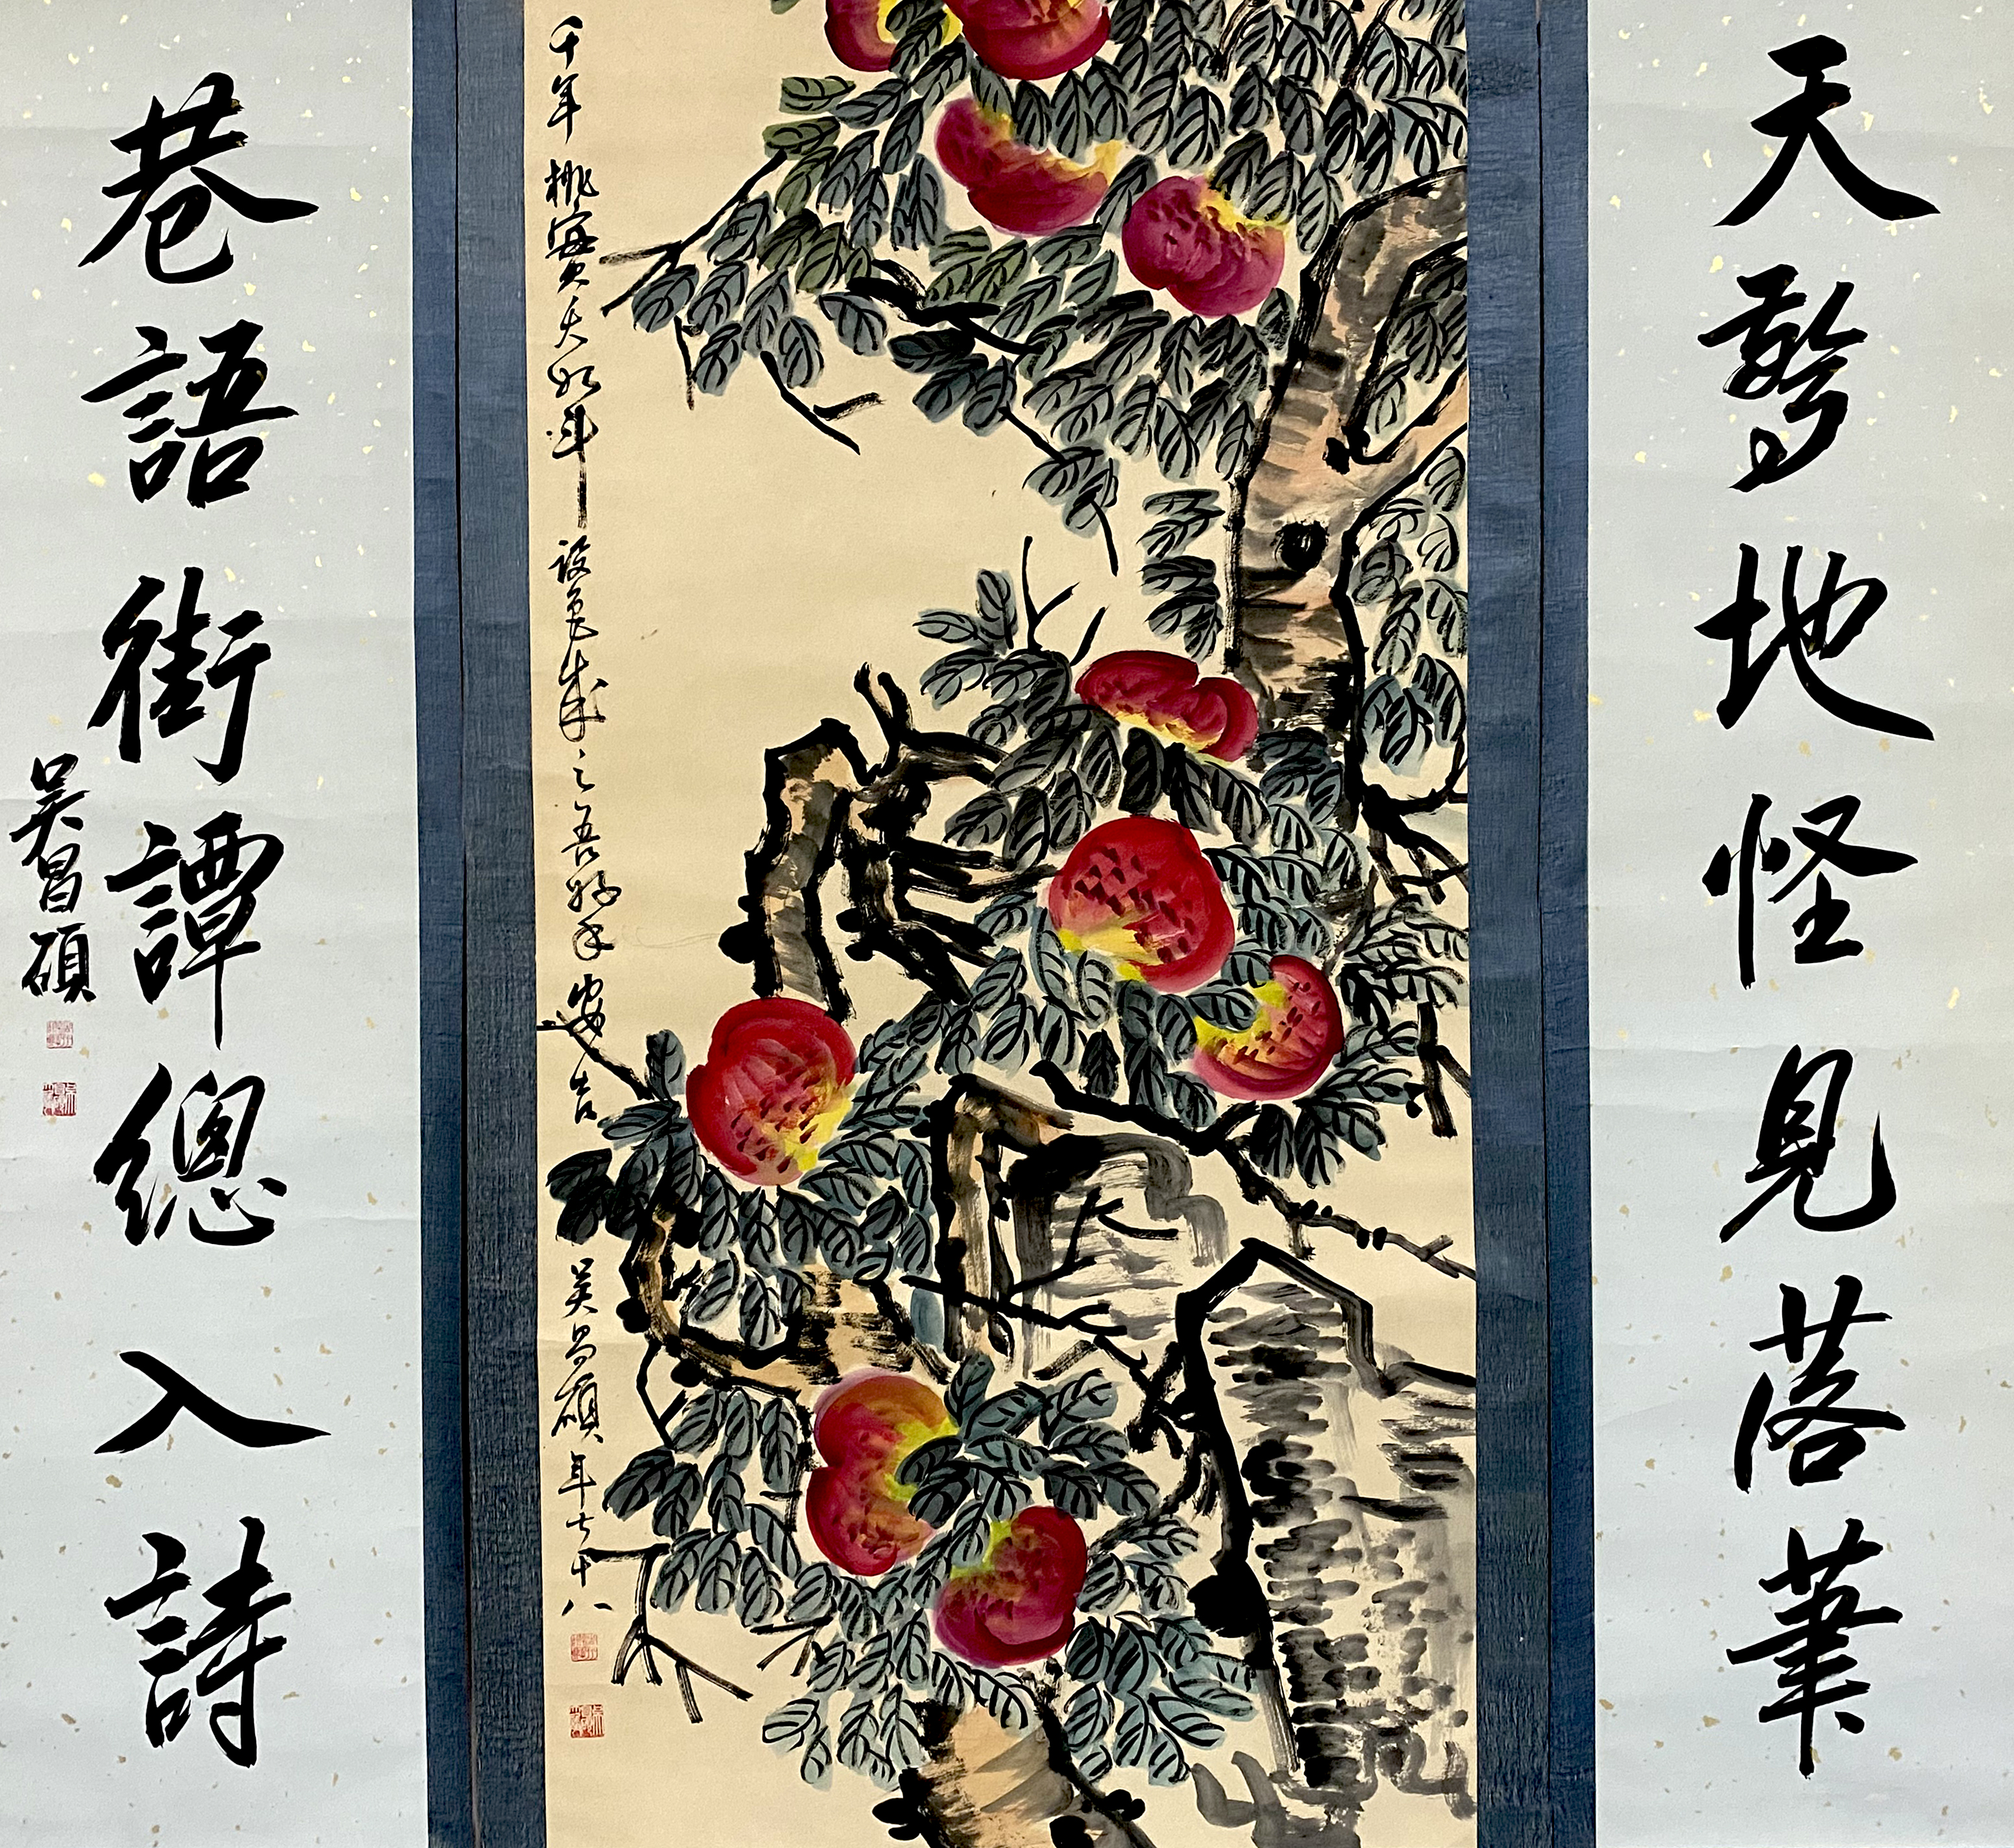 天驚地怪見落筆
千年桃實大如斗 設色成之吾好手 安吉 吳昌碩年七十八
巷語街譚總入詩
吳昌碩